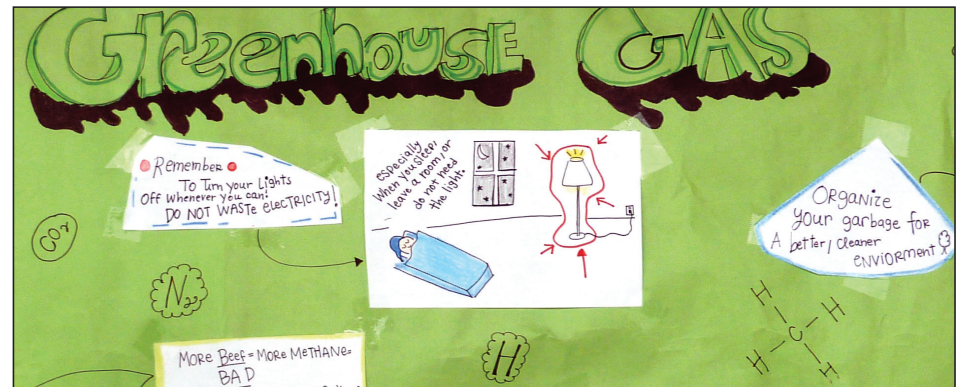 Greenhouse GAS
Remember
To Turn your Lights
Off Whenever you can!
DO NOT WASTe eLeCTRiCiTY!
especially
When you sleep,
leave a room, or
do not need
the light.
ORganize
your garbage for
A better/cleaner
enviorment
CO₂
N₂
H
H
H
C
H
H
MORe Beef = MORe MeTHANe =
BAD